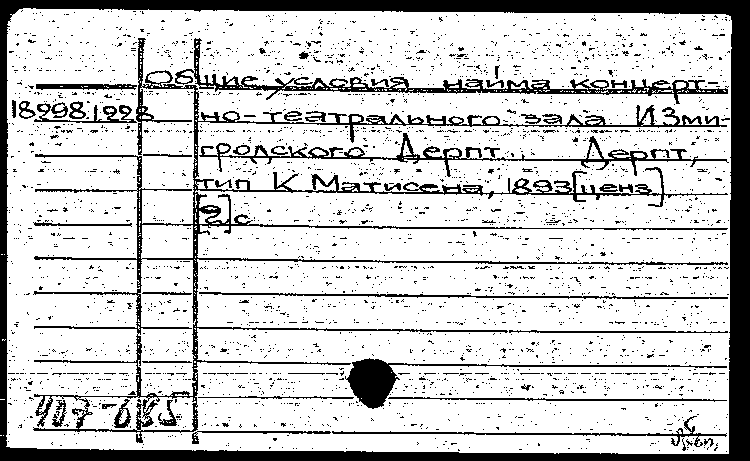 Общие условия найма концерт-
18298.1228 но-театрального зала И Зми-
гродского. Дерпт... Дерпт,
тип К Матисена, 1893 [ценз]
[2] с
407-685